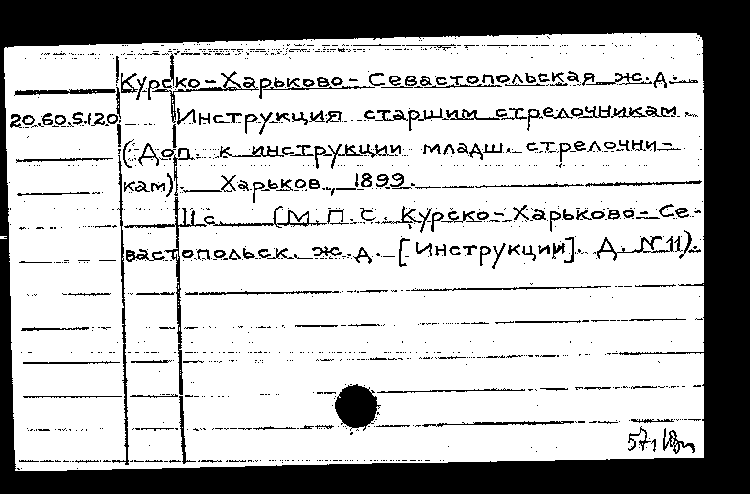 Курско-Харьково-Севастопольская ж.д.
20.60.5.120 Инструкция старшим стрелочникам.
(Доп. к инструкции младш. стрелочни-
кам). Харьков, 1899.
11 с. (М.П.С. Курско-Харьково-Се-
вастопольск. ж.д. [Инструкции]. Д. №11).